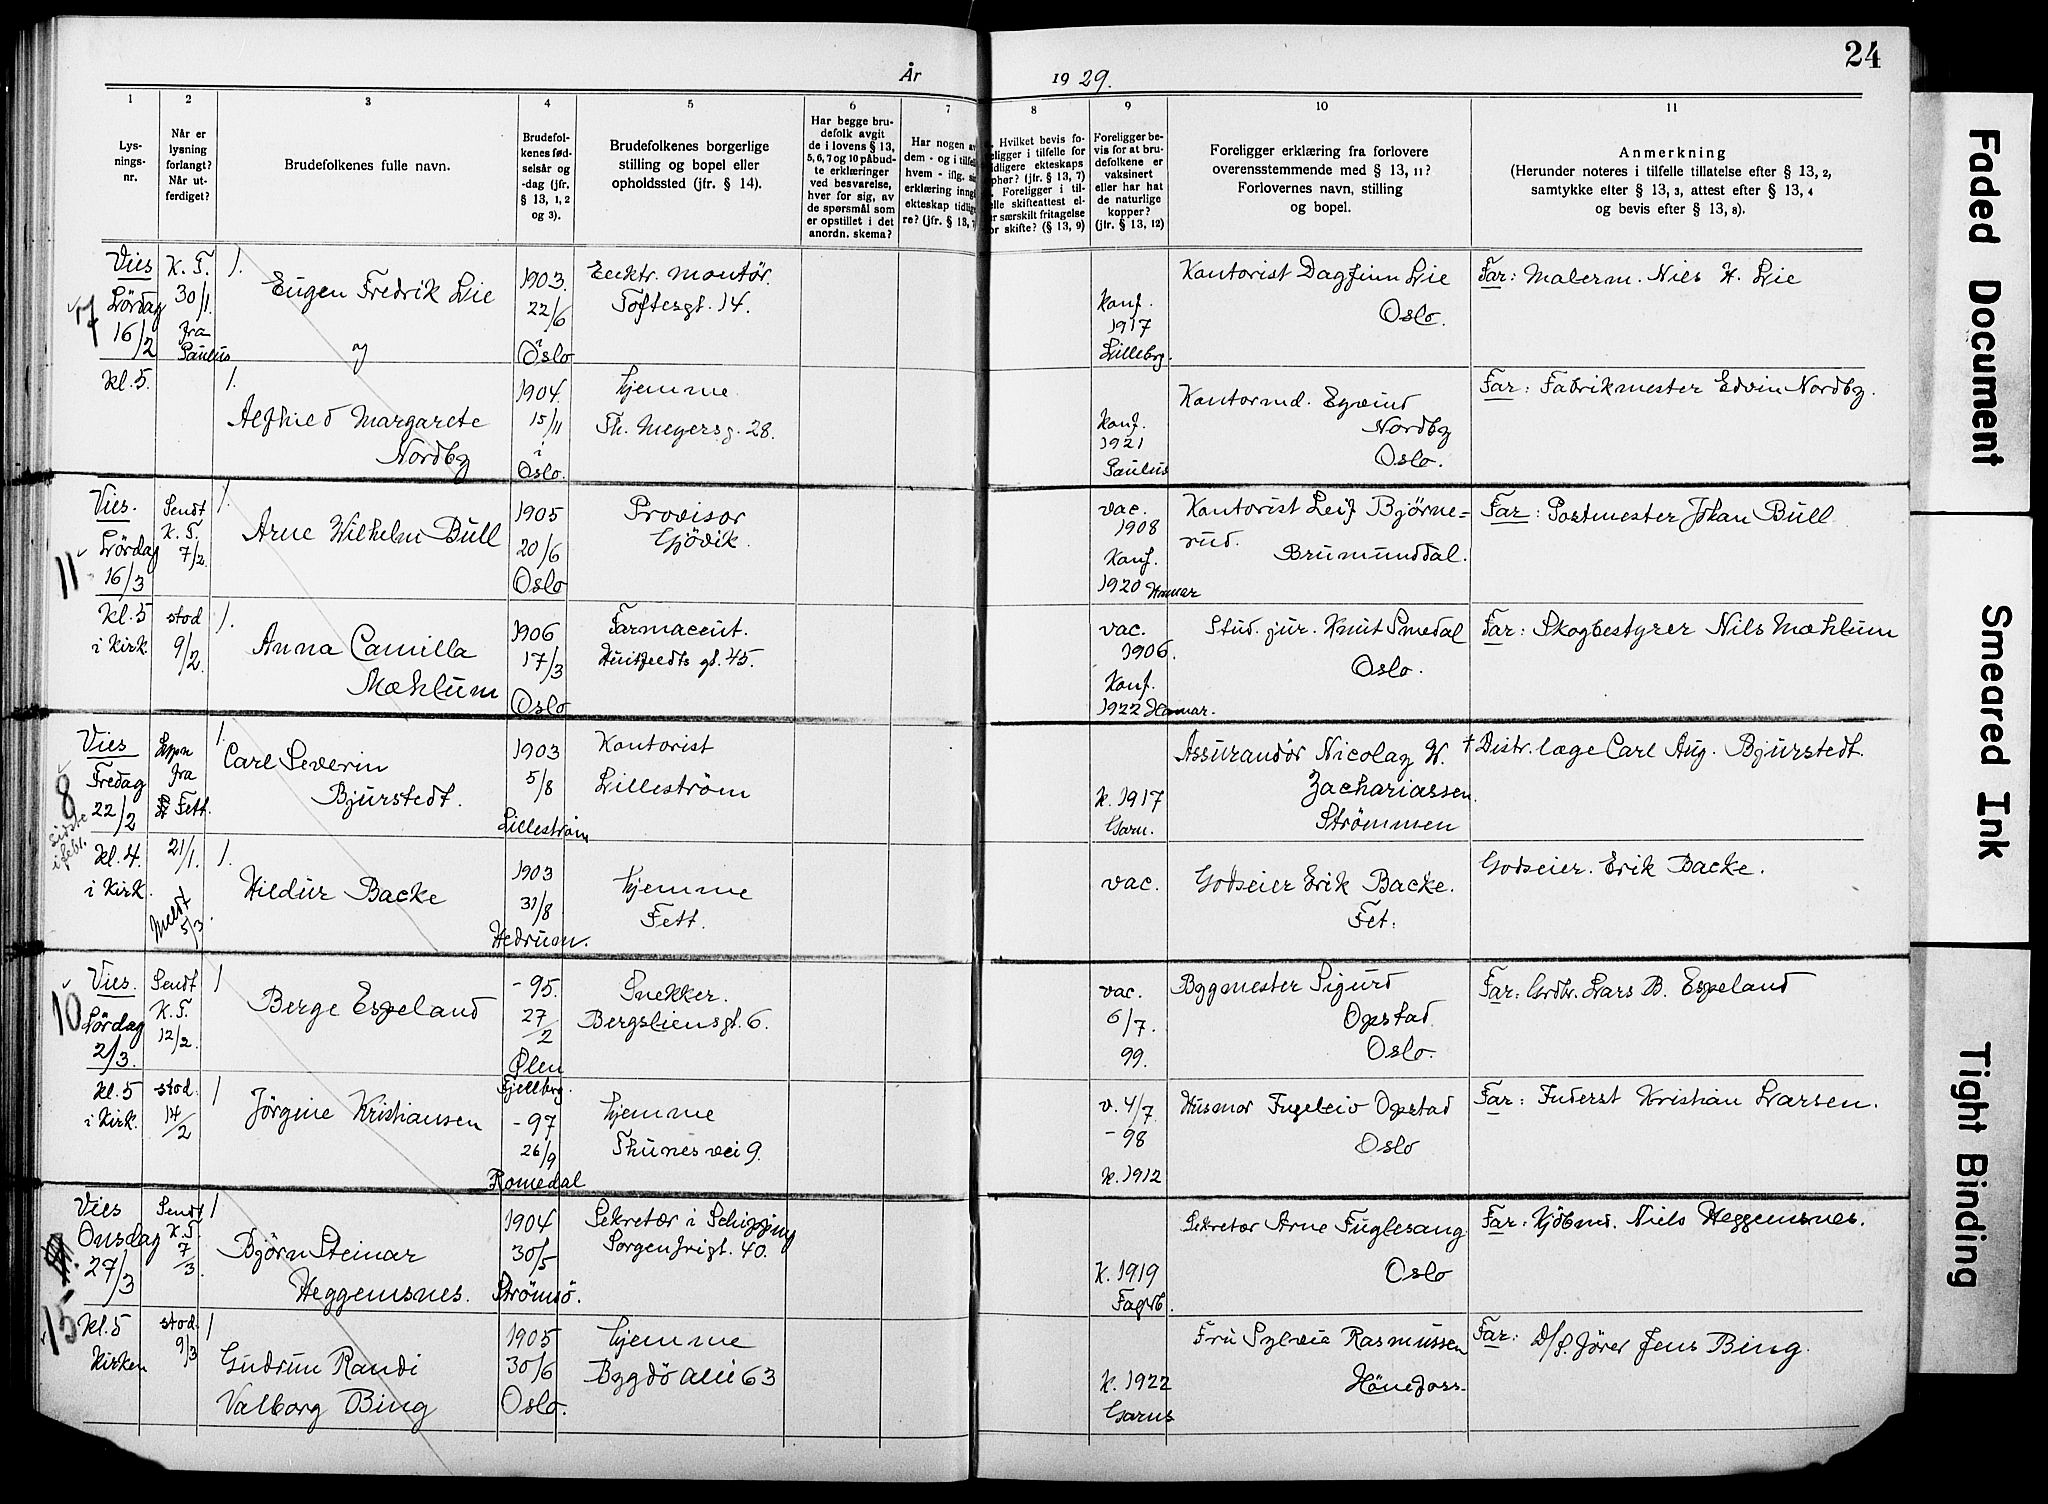 24
År 1929.
1 2 3 4 5 6 7 8 9 10 11
Lys-
nings-
nr.
Når er
lysning
forlangt?
Når ut-
ferdiget?
Brudefolkenes fulle navn.
Brudefol-
kenes fød-
selsår og
-dag (jfr.
§ 13, 1, 2
og 3).
Brudefolkenes borgerlige
stilling og bopel eller
opholdssted (jfr. § 14).
Har begge bru-
defolk avgit
de i lovens § 13,
5, 6, 7 og 10 påbud-
te erklæringer
ved besvarelse,
hver for sig, av
de spørsmål som
er opstillet i det
anordn. skema?
Har nogen av
dem - og i tilfelle
hvem - iflg. si
erklæring inng
ekteskap tidlig
re? (jfr. § 13, 7
Hvilket bevis fo-
religger i tilfelle for
tidligere ekteskaps
ophør? (jfr. § 13, 7)
Foreligger i til-
felle skifteattest el-
er særskilt fritagelse
or skifte? (§ 13, 9)
Foreligger be-
vis for at bru-
defolkene er
vaksinert
eller har hat
de naturlige
kopper?
(jfr. § 13, 12)
Foreligger erklæring fra forlovere
overensstemmende med § 13, 11?
Forlovernes navn, stilling
og bopel.
Anmerkning
(Herunder noteres i tilfelle tillatelse efter § 13, 2,
samtykke efter § 13, 3, attest efter § 13, 4
og bevis efter § 13, 8).
7
Vies
Lördag
16/2
kl. 5.
K. T.
30/1
fra
Paulus
1.
Eugen Fredrik Lie
1903.
22/6
i
Oslo
Elektr. montör.
Toftesgt. 14.
Konf.
1917
Lilleborg.
Kontorist Dagfinn Lie
Oslo.
Far: Malerm. Niels H. Lie
1.
Alfhild Margarete
Nordby
1904.
15/11
i
Oslo.
hjemme
Th. Meyersg. 28.
Konf.
1921
Paulus
Kontormd. Eyvind
Nordby
Oslo.
Far: Fabrikmester Edvin Nordby.
11
Vies.
Lördag
16/3
kl. 5
i Kirk.
Sendt
K. T.
7/2.
stod
9/2.
1.
Arne Wilhelm Bull
1905
20/6
Oslo
Provisor
Gjövik.
vac.
1908
Konf.
1920 Hamar
Kontorist Leif Bjørne=
rud.
Brumunddal.
Far: Postmester Johan Bull
1.
Anna Camilla
Mæhlum
1906
17/3
Oslo
Farmaceut.
Huitfeldts gt. 45.
vac.
1906.
Konf.
1922 Hamar.
Stud. jur. Knut Smedal
Oslo.
Far: Skogbestyrer Nils Mæhlum
8
Vies
Fredag
22/2
kl. 4.
i Kirk.
Sidste
i febr.
Lysn
fra
Fett.
21/1.
Meldt
5/3.
1.
Carl Severin
Bjurstedt.
1903
5/8
Lilleström
Kontorist
Lilleström
K. 1917
Garn.
Assurandör Nicolay W.
Zachariassen.
Strömmen
† Distr. læge Carl Aug. Bjurstedt.
1.
Hildur Backe
1903
31/8
Hedrum.
hjemme
Fett.
vac.
Godseier Erik Backe.
Fet.
Godseier. Erik Backe.
10
Vies.
Lördag
2/3.
kl. 5
i Kirk.
Sendt
K. T.
12/2.
stod.
14/2
1
Berge Espeland
- 95.
27/2
Ølen
Fjellberg.
Snekker.
Bergsliensgt. 6.
vac.
6/7.
99.
Bygmester Sigurd
Opstad.
Oslo.
Far: Grdbr. Lars B. Espeland
1
Jörgine Kristiansen
- 97
26/9
Romedal
hjemme
Thunes vei 9.
v. 4/7
- 98
K. 1912
Husmor Ingeleiv Opstad
Oslo
Far: Inderst Kristian Larsen.
15
Vies
Onsdag
27/3
kl. 5
Kirken
Sendt
K. T.
7/3.
stod.
9/3
1
Björn Steinar
Heggemsnes.
1904
30/5
Strömsö.
Sekretær i Schipping
Sorgenfrigt. 40.
K. 1919
Fagerb.
Sekretær Arne Fuglesang
Oslo
Far: Kjöbmd. Niels Heggemsnes.
1
Gudrun Randi
Valborg Bing
1905
30/6
Oslo.
hjemme
Bygdö alle 63
K. 1922
Garnis
Fru Sylvia Rasmussen
Hönefoss.
Far: D/s. förer Jens Bing.
Faded Document
Smeared Ink
Tight Binding